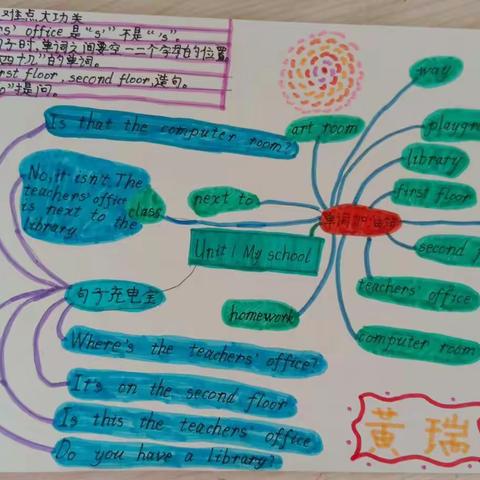 难点大功关
s' office 是 "s'" 不是 "s".
句子时,单词之间要空一二个字母的位置.
的单词.
first floor, second floor, 造句.
提问.
Is that the computer room?
No, it isn't. The
teachers' office
is next to the
library
class
next to
art room
way
playgr
library
first floor
second f
teachers' office
computer room
homework
Unit 1 My school
单词加油站
句子充电宝
Where's the teachers' office?
It's on the second floor
Is this the teachers' office
Do you have a library?
黄瑞